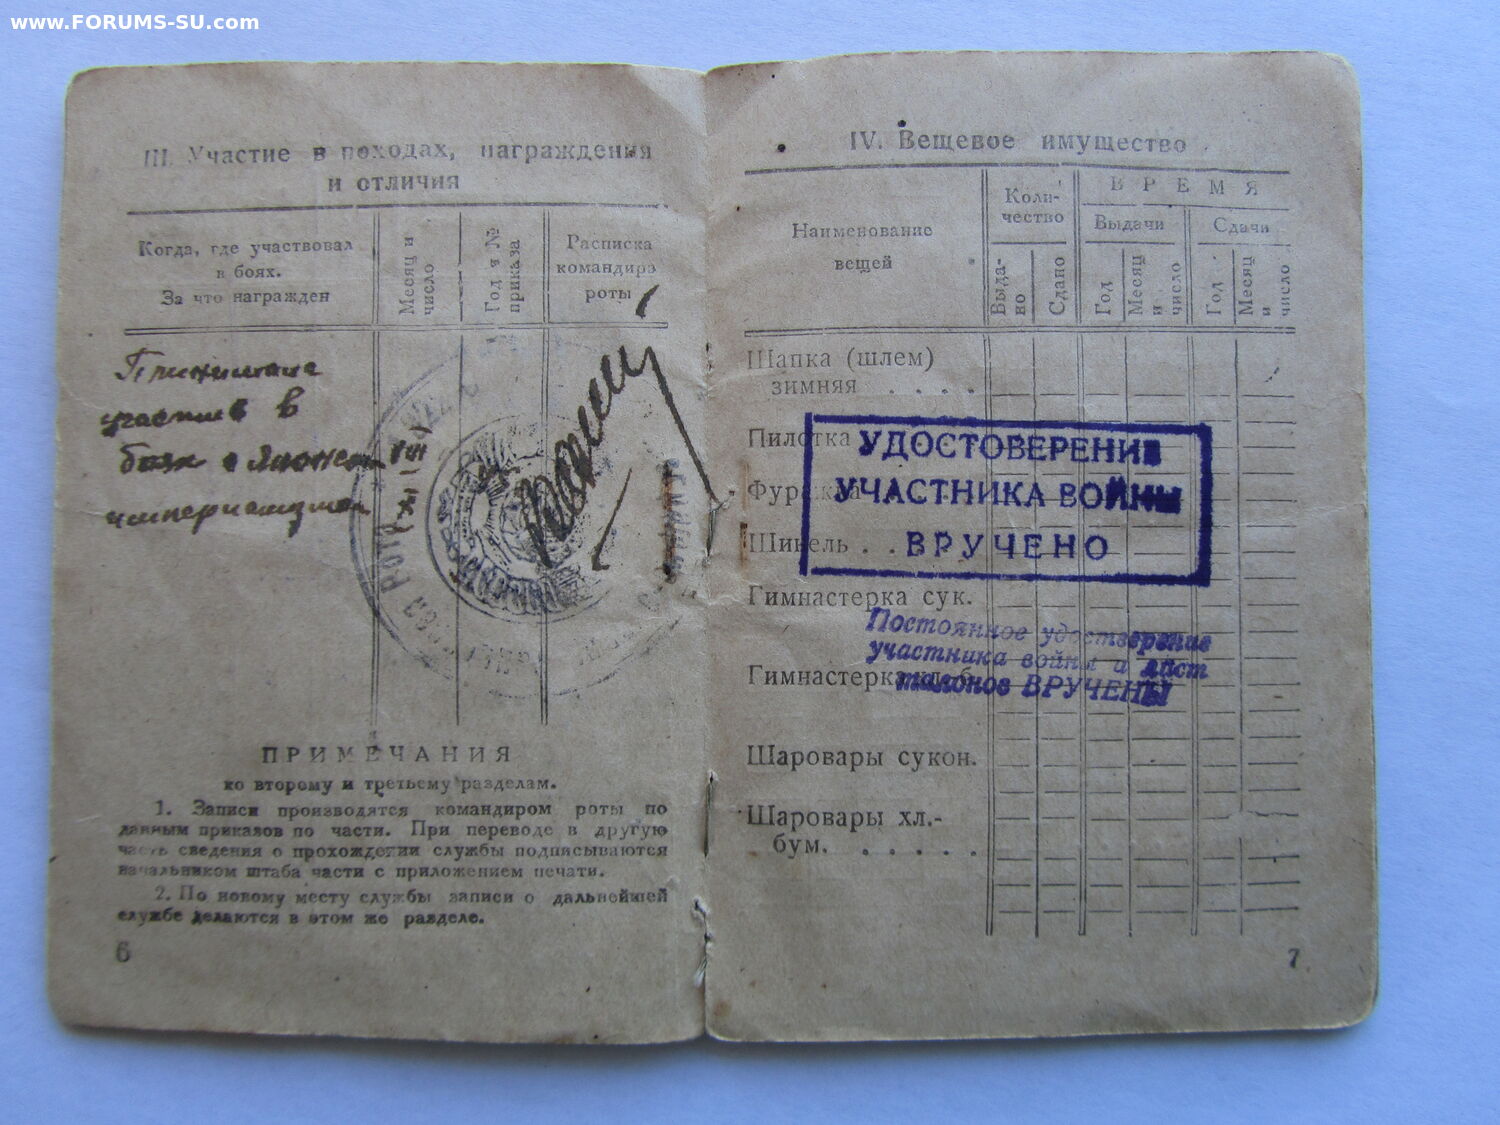 www.FORUMS-SU.com
III. Участие в походах, награждения
и отличия
Когда, где участвовал
в боях.
За что награжден
Месяц и
число
Год и №
приказа
Расписка
командира
роты
Принимала
участие в
боях с Японским
империализмом
ПРИМЕЧАНИЯ
ко второму и третьему разделам.
1. Записи производятся командиром роты по
данным приказов по части. При переводе в другую
часть сведения о прохождении службы подписываются
начальником штаба части с приложением печати.
2. По новому месту службы записи о дальнейшей
службе делаются в этом же разделе.
6
IV. Вещевое имущество
Наименование
вещей
Коли-
чество
ВРЕМЯ
Выдачи
Сдачи
Выда-
но
Сдано
Год
Месяц
и
число
Год
Месяц
и
число
Шапка (шлем)
зимняя . . . .
Пилотка
Фуражка
Шинель . .
Гимнастерка сук.
Гимнастерка
Шаровары сукон.
Шаровары хл.-
бум. . . . . .
УДОСТОВЕРЕНИЕ
УЧАСТНИКА ВОЙНЫ
ВРУЧЕНО
Постоянное удостверение
участника войны и лист
талонов ВРУЧЕНЫ
7